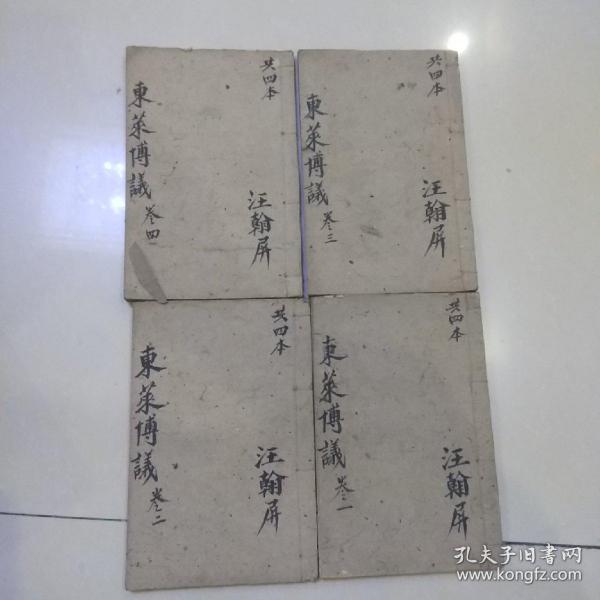 共四本
東萊博議 卷四
汪翰屏
共四本
東萊博議 卷三
汪翰屏
共四本
東萊博議 卷二
汪翰屏
共四本
東萊博議 卷一
汪翰屏
孔夫子旧书网
www.kongfz.com